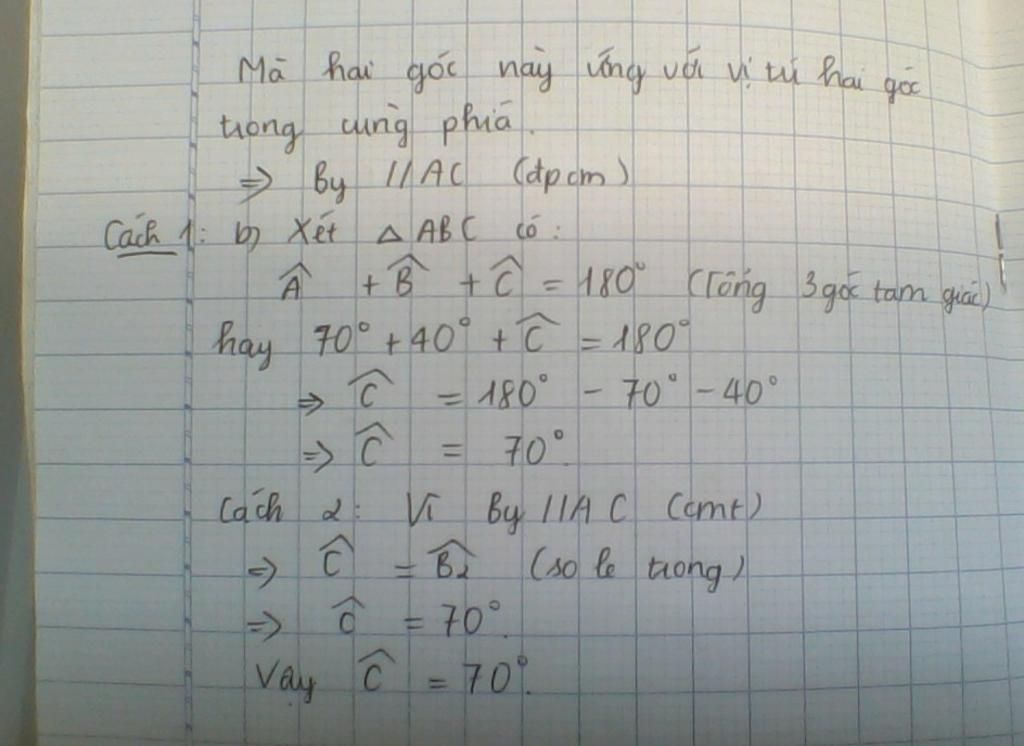 Mà hai góc này ứng với vị trí hai góc
trong cùng phía.
⇒ By // AC (đpcm)
Cách 1: b) Xét △ ABC có:
Â + B̂ + Ĉ = 180° (Tổng 3 góc tam giác)
hay 70° + 40° + Ĉ = 180°
⇒ Ĉ = 180° - 70° - 40°
⇒ Ĉ = 70°.
Cách 2: Vì By // AC (cmt)
⇒ Ĉ = B̂₂ (so le trong)
⇒ Ĉ = 70°.
Vậy Ĉ = 70°.